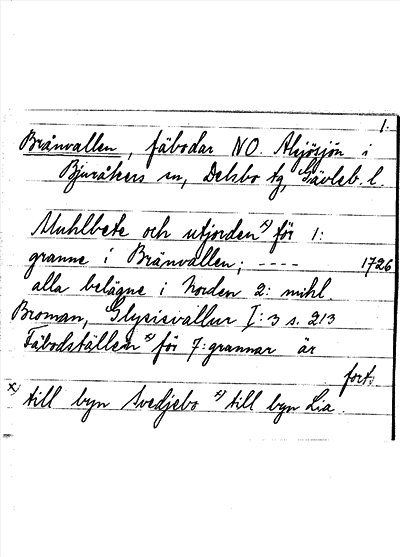 1.
Brånvallen, fäbodar NO. Alsjösjön i
Bjuråkers sn, Delsbo tg, Gävleb. l.
Muhlbete och utjorden x) för 1:
granne i Brånvallen; ---- 1726
alla belägne i Norden 2: mihl
Broman, Glysisvallur I: 3 s. 213
Fäbodställen x) för 7: grannar är
fort.
x) till byn Svedjebo x) till byn Lia.